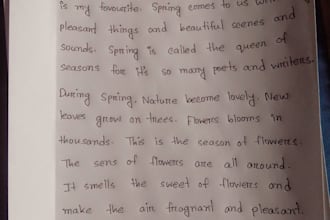 is my favourite. Spring comes to us with
pleasant things and beautiful scenes and
sounds. Spring is called the queen of
seasons for it's so many poets and writers.
During Spring, Nature become lovely. New
leaves grow on trees. Flowers blooms in
thousands. This is the season of flowers.
The sens of flowers are all around.
It smells the sweet of flowers and
make the air fragnant and pleasant.